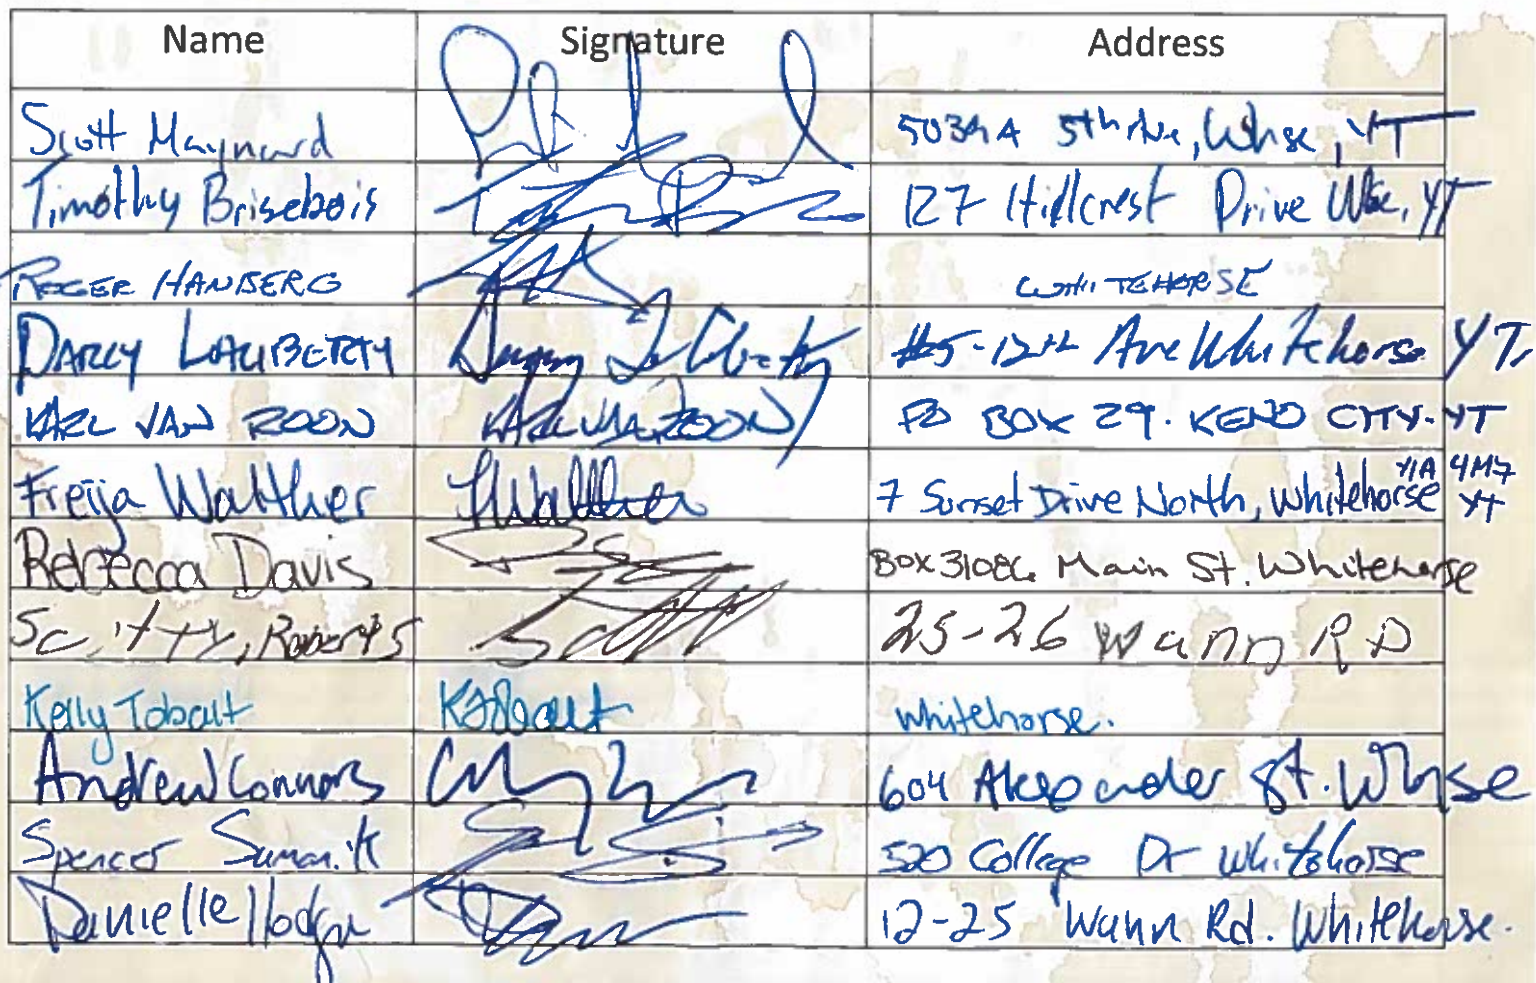 Name Signature Address
Scott Maynard 5039A 5th Ave, Whse, YT
Timothy Brisebois 127 Hillcrest Drive Wse, YT
ROGER HANBERG WHITEHORSE
DARCY LALIBERTY -12th Ave Whitehorse YT.
KARL VAN ZOON KARL VAN ZOON PO BOX 29. KENO CITY. YT
Freija Walther FWalther 7 Sunset Drive North, Whitehorse Y1A 4M7 YT
Rebecca Davis Box 31086 Main St. Whitehorse
Roberts Scott 25-26 Wann RD
Kelly Tobalt whitehorse.
Andrew Connors 604 Alexander St. Whse
Spencer Sumanik 520 College Dr Whitehorse
Danielle 12-25 Wann Rd. Whitehorse.